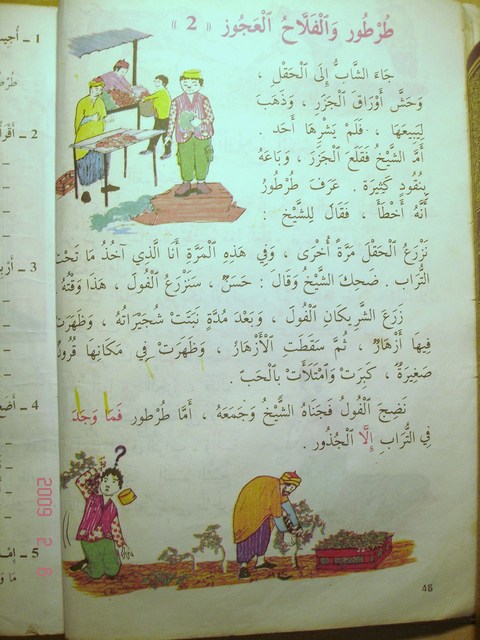 طُرْطُور وَٱلْفَلَّاحُ ٱلْعَجُوز « 2 »
جَاءَ الشَّابُّ إِلَى ٱلْحَقْلِ ،
وَحَشَّ أَوْرَاقَ ٱلْجَزَرِ ، وَذَهَبَ
لِيَبِيعَهَا ، فَلَمْ يَشْرِهَا أَحَد .
أَمَّ الشَّيْخُ فَقَلَعَ ٱلْجَزَرَ ، وَبَاعَهُ
بِنُقُودٍ كَثِيرَة . عَرَفَ طُرْطُورُ
أَنَّهُ أَخْطَأَ ، فَقَالَ لِلشَّيْخِ :
نَزْرَعُ ٱلْحَقْلَ مَرَّةً أُخْرَى ، وَفِي هَذِهِ ٱلْمَرَّةِ أَنَا الَّذِي آخُذُ مَا تَحْتَ
التُّرَاب . ضَحِكَ الشَّيْخُ وَقَالَ : حَسَنٌ ، سَنَزْرَعُ ٱلْفُولَ ، هَذَا وَقْتُهُ
زَرَعَ الشَّرِيكَانِ ٱلْفُولَ ، وَبَعْدَ مُدَّةٍ نَبَتَتْ شُجَيْرَاتُهُ ، وَظَهَرَتْ
فِيهَا أَزْهَارٌ ، ثُمَّ سَقَطَتِ ٱلْأَزْهَارُ ، وَظَهَرَتْ فِي مَكَانِهَا قُرُونٌ
صَغِيرَةٌ ، كَبِرَتْ وَٱمْتَلَأَتْ بِٱلْحَبّ .
نَضِجَ ٱلْفُولُ فَجَنَاهُ الشَّيْخُ وَجَمَعَهُ ، أَمَّا طُرْطور فَمَا وَجَدَ
فِي التُّرَابِ إِلَّا ٱلْجُذُور .
?
46
1 ـ أُجِيبُ
2 ـ أَقْرَأُ
3 ـ
4 ـ
5 ـ
2009 2 8